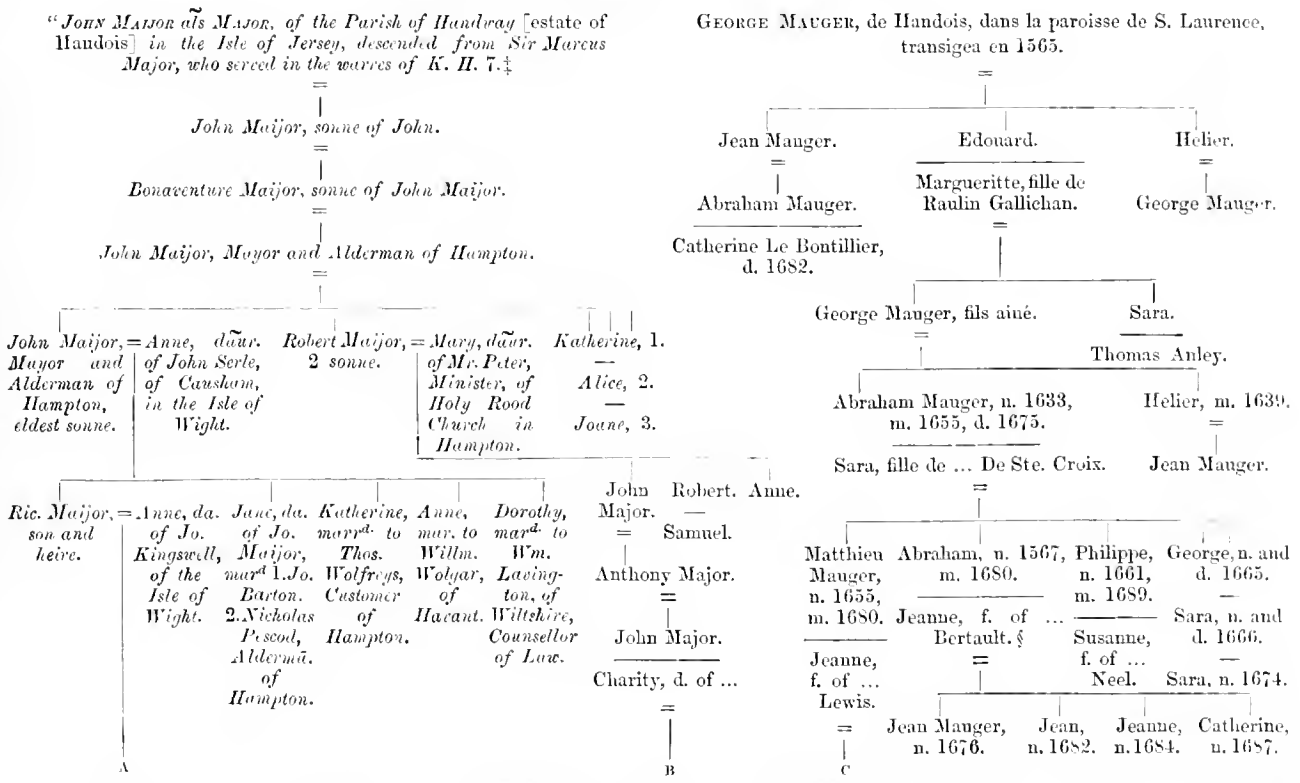 "JOHN MAIJOR al̃s MAJOR, of the Parish of Handway [estate of
Handois] in the Isle of Jersey, descended from Sir Marcus
Major, who served in the warres of K. H. 7.‡
=
John Maijor, sonne of John.
=
Bonaventure Maijor, sonne of John Maijor.
=
John Maijor, Mayor and Alderman of Hampton.
=
John Maijor,
Mayor and
Alderman of
Hampton,
eldest sonne.
=
Anne, dãur.
of John Serle,
of Causham,
in the Isle of
Wight.
Robert Maijor,
2 sonne.
=
Mary, dãur.
of Mr. Peter,
Minister, of
Holy Rood
Church in
Hampton.
Katherine, 1.
—
Alice, 2.
—
Joane, 3.
Ric. Maijor,
son and
heire.
=
Anne, da.
of Jo.
Kingswell,
of the
Isle of
Wight.
Jane, da.
of Jo.
Maijor,
mard 1.Jo.
Barton.
2.Nicholas
Pescod,
Aldermã.
of
Hampton.
Katherine,
marrd. to
Thos.
Wolfreys,
Customer
of
Hampton.
Anne,
mar. to
Willm.
Wolgar,
of
Havant.
Dorothy,
mard. to
Wm.
Laving-
ton, of
Wiltshire,
Counsellor
of Law.
John
Major.
=
Robert.
—
Samuel.
Anne.
Anthony Major.
=
John Major.
Charity, d. of ...
=
A
B
GEORGE MAUGER, de Handois, dans la paroisse de S. Laurence,
transigea en 1565.
=
Jean Mauger.
=
Abraham Mauger.
Catherine Le Bontillier,
d. 1682.
Edouard.
Margueritte, fille de
Raulin Gallichan.
=
Helier.
=
George Mauger.
George Mauger, fils ainé.
=
Sara.
Thomas Anley.
Abraham Mauger, n. 1633,
m. 1655, d. 1675.
Sara, fille de ... De Ste. Croix.
=
Helier, m. 1639.
=
Jean Mauger.
Matthieu
Mauger,
n. 1655,
m. 1680.
Jeanne,
f. of ...
Lewis.
=
C
Abraham, n. 1567,
m. 1680.
Jeanne, f. of ...
Bertault. §
=
Philippe,
n. 1661,
m. 1689.
Susanne,
f. of ...
Neel.
George, n. and
d. 1665.
—
Sara, n. and
d. 1666.
—
Sara, n. 1674.
Jean Mauger,
n. 1676.
Jean,
n. 1682.
Jeanne,
n. 1684.
Catherine,
n. 1687.